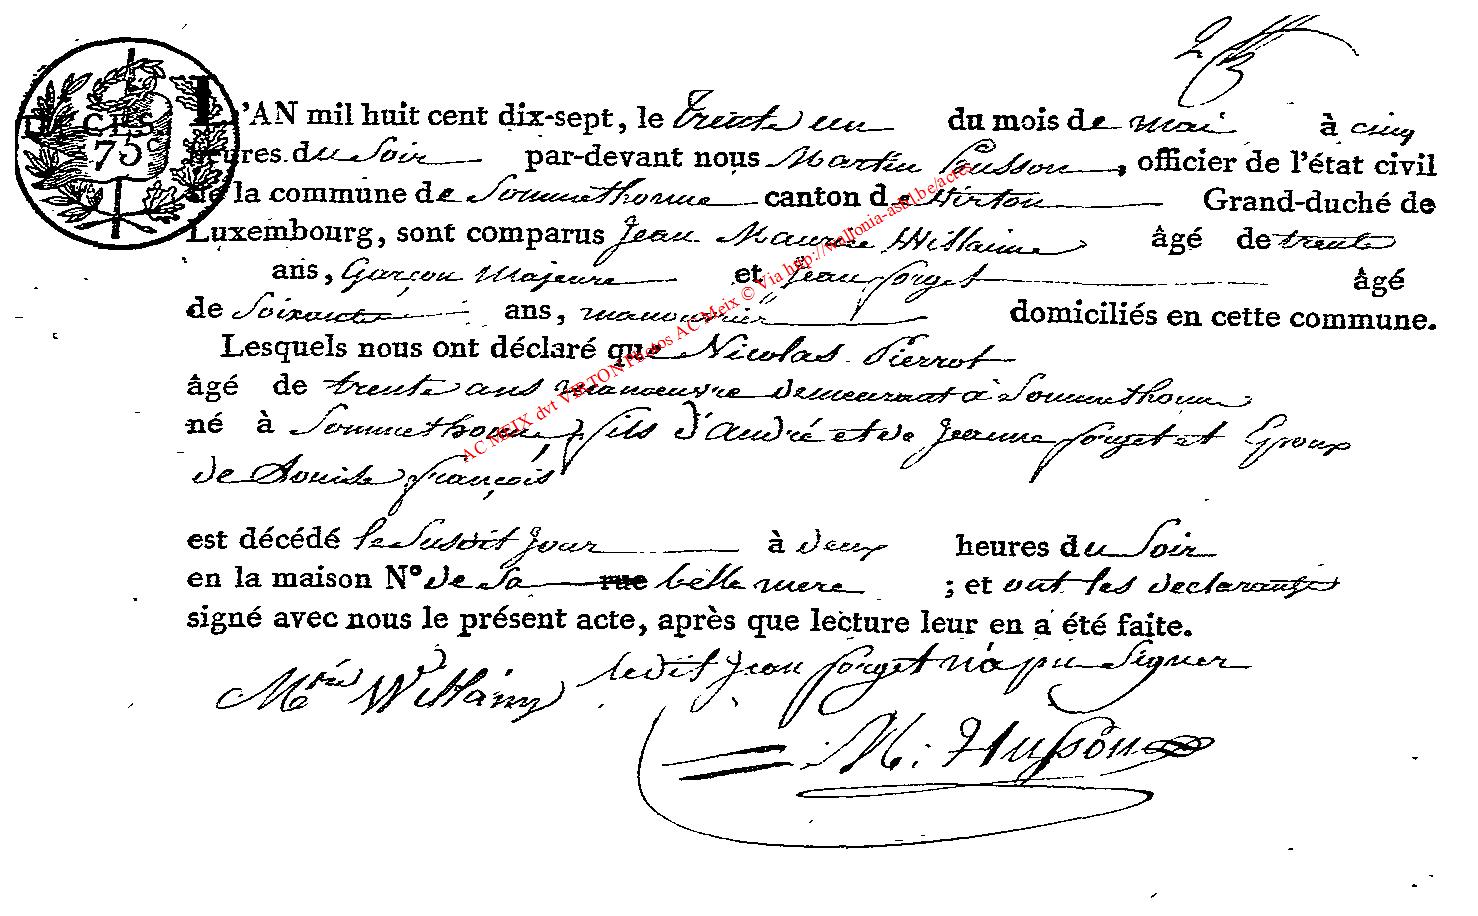 L'AN mil huit cent dix-sept, le trente un du mois de mai à cinq
heures du Soir par-devant nous Martin husson, officier de l'état civil
de la commune de Sommethonne canton de Virton Grand-duché de
Luxembourg, sont comparus Jean Maurice Willaime âgé de trente
ans, Garçon majeure et Jean forget âgé
de Soixante ans, manouvrier domiciliés en cette commune.
Lesquels nous ont déclaré que Nicolas Pierrot
âgé de trente ans manoeuvre demeurant à Sommethonne
né à Sommethonne, fils d'andré et de Jeanne forget et Epoux
de Louise françois
est décédé le Susdit Jour à deux heures du Soir
en la maison N° de Sa rue belle mere ; et ont les declarants
signé avec nous le présent acte, après que lecture leur en a été faite.
ledit Jean forget n'a pu Signer
Mce Willaime
M: Husson
75c
AC MEIX dvt VIRTON Photos AC Meix © Via http://wallonia-asbl.be/actes